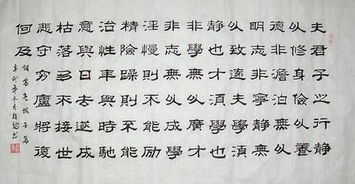 夫君子之行靜
以修身儉以養
德非澹泊無以
明志非寧靜無
以致遠夫學須
靜也才須學也
非學無以廣才
非志無以成學
淫慢則不能勵
精險躁則不能
治性年與時馳
意與日去遂成
枯落多不接世
悲守窮廬將復
何及
諸葛亮誡子篇